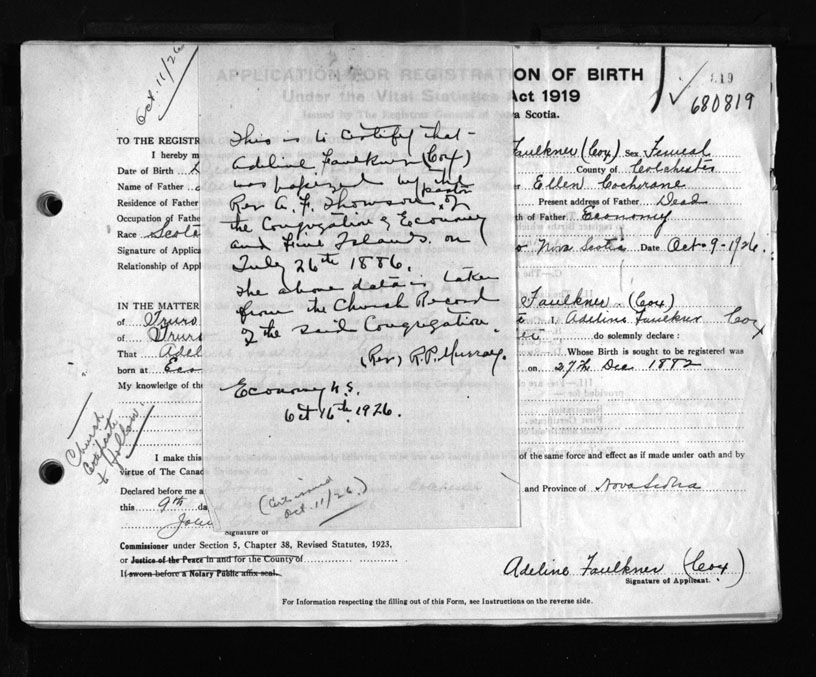 Oct. 11/26
APPLICATION FOR REGISTRATION OF BIRTH
Under the Vital Statistics Act 1919
Issued by the Registrar General of Nova Scotia.
819
680819
TO THE REGISTR
I hereby m
Faulkner (Cox) Sex Femeal
Date of Birth
County of Colchester
Name of Father
Ellen Cochrane
Residence of Father
Present address of Father Dead
Occupation of Fathe
th of Father Economy
Race Scot
Signature of Applica
Nova Scotia Date Oct. 9-1926.
Relationship of Appl
This is to certify that
Adeline Faulkner (Cox)
was baptized by the
Rev A. F. Thomson, pastor of
the Congregation of Economy
and Five Islands on
July 26th 1886.
The above data is taken
from the Church Record
of the said Congregation.
(Rev) R.P. Murray.
Economy N.S.
Oct 16th 1926.
(Cert issued
Oct. 11/26.)
IN THE MATTER
Faulkner (Cox)
of Truro
I Adeline Faulkner Cox
of Truro
do solemnly declare:
That Adel
Whose Birth is sought to be registered was
born at Eco
on 27th Dec 1882
My knowledge of the
Church
Certificate
to follow.
I make this
of the same force and effect as if made under oath and by
virtue of The Canad
Declared before me a
and Province of Nova Scotia
this 9th da
Signature of
Commissioner under Section 5, Chapter 38, Revised Statutes, 1923,
or Justice of the Peace in and for the County of
If sworn before a Notary Public affix seal.
Adeline Faulkner (Cox)
Signature of Applicant.
For Information respecting the filling out of this Form, see Instructions on the reverse side.